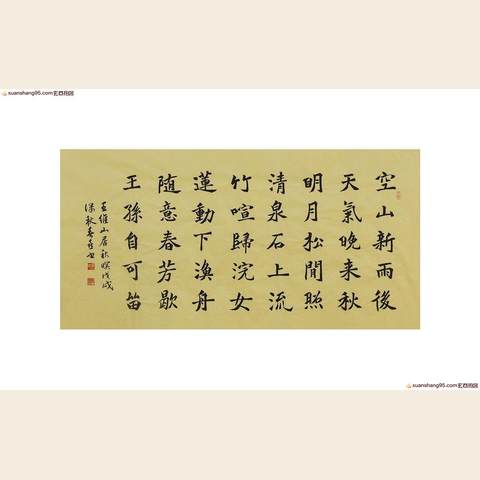 xuanshang95.com
空山新雨後
天氣晚来秋
明月松間照
清泉石上流
竹喧歸浣女
蓮動下漁舟
随意春芳歇
王孫自可留
王維山居秋暝戊戌
深秋
xuanshang95.com